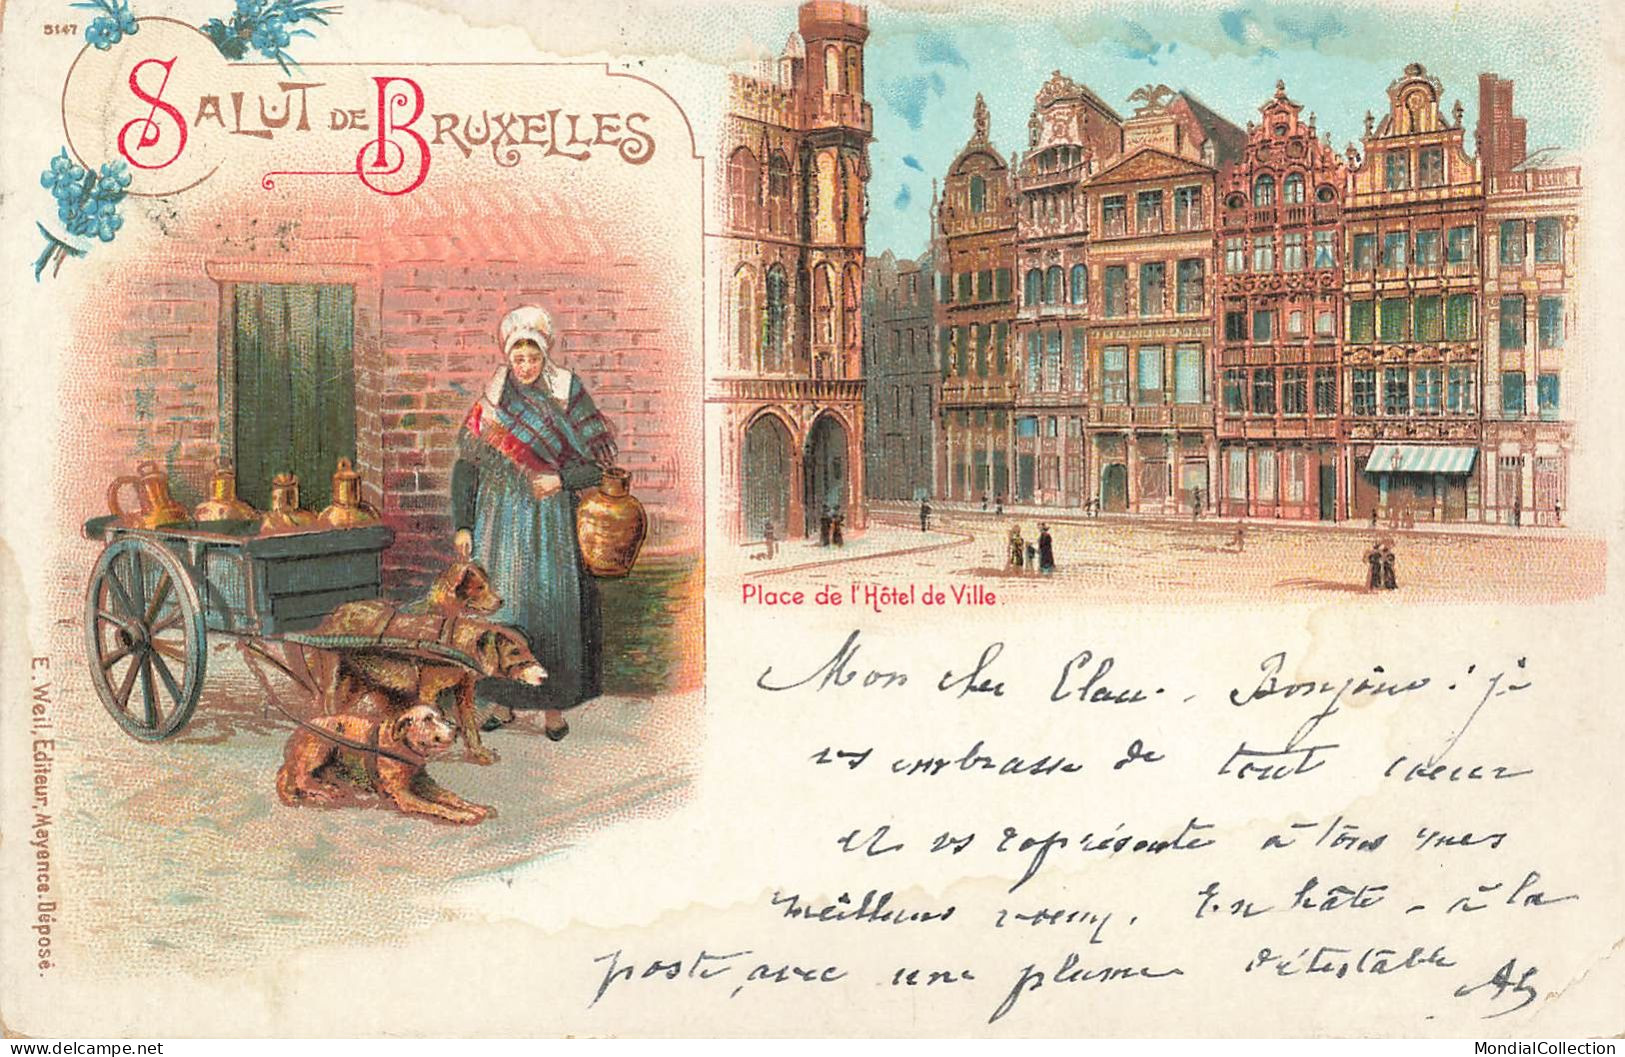 5147
SALUT DE BRUXELLES
Place de l'Hôtel de Ville.
E. Weil, Editeur, Mayence. Déposé.
Mon cher Bonjour! je
vs embrasse de tout coeur
et vs représente à tous mes
meilleurs voeux. En hâte - à la
poste, avec une plume détestable
MondialCollection